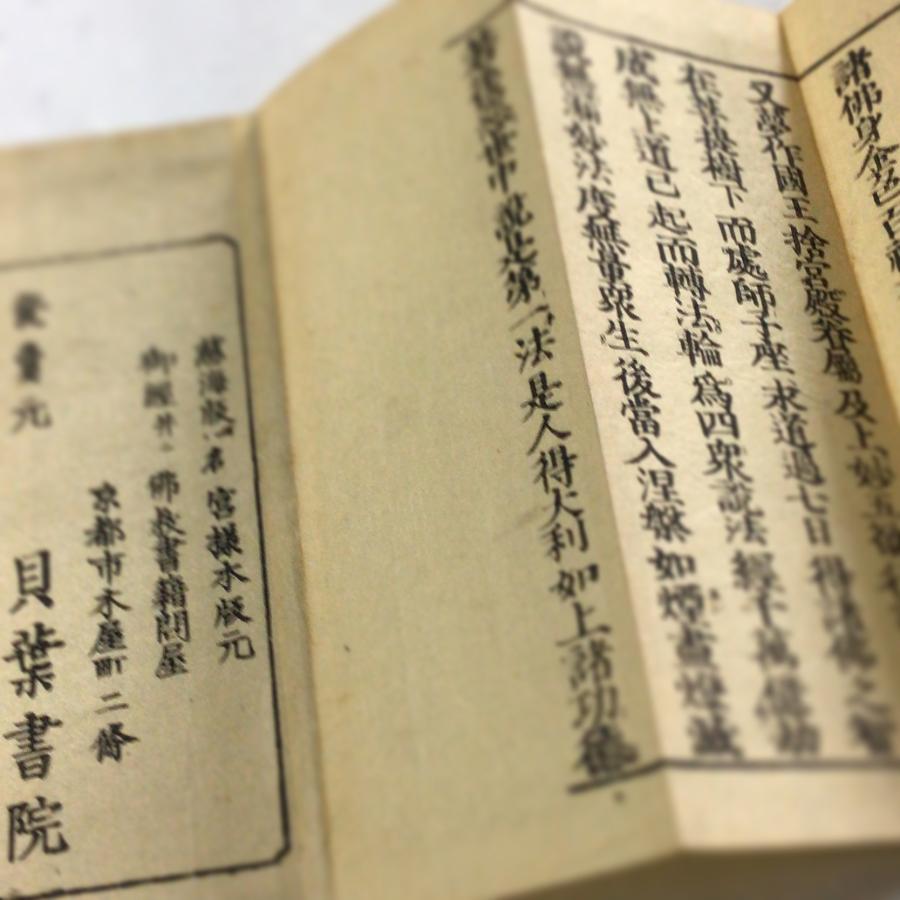 諸佛身金色百
又夢作國王捨宮殿眷屬及上妙五欲
在菩提樹下而處師子座求道過七日得諸佛之智
成無上道已起而轉法輪為四眾說法經千萬億劫
說無漏妙法度無量眾生後當入涅槃如煙盡燈滅
若後惡世中說是第一法是人得大利如上諸功德
名 宮様木版元
御經并ニ佛教書籍問屋
京都市木屋町二條
發賣元 貝葉書院